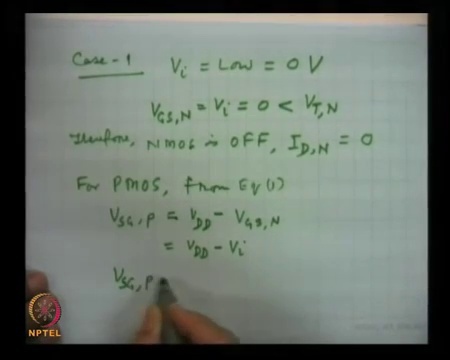 Case-1 Vi = Low = 0 V
VGS,N = Vi = 0 < VT,N
Therefore, NMOS is OFF, ID,N = 0
For PMOS, from Eq(1)
VSG,P = VDD - VGS,N
= VDD - Vi
VSG,P
NPTEL